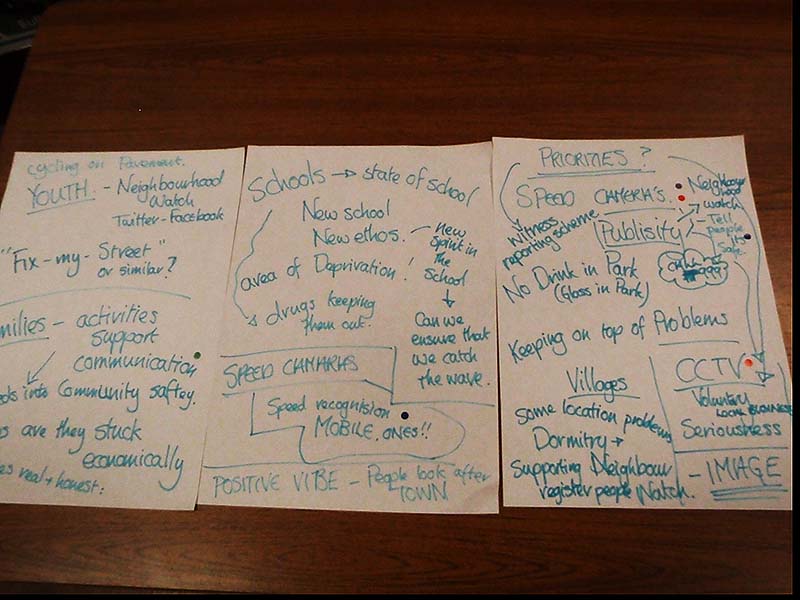 cycling on Pavement.
YOUTH. - Neighbourhood
Watch
Twitter - Facebook
"Fix-my-Street"
or similar?
milies - activities
support
communication
into Community saftey.
are they stuck
economically
real + honest:
Schools → state of school
New school
New ethos.
new
Spirit in
the
School
area of Deprivation!
drugs keeping
them out.
Can we
ensure that
we catch
the wave.
SPEED CAMARAS
Speed recognision
MOBILE ONES!!
POSITIVE VIBE - People look after
TOWN
PRIORITIES?
SPEED CAMERA'S.
Neighbour
hood
watch
Witness
reporting scheme
Publisity
- Tell
people
its
Safe.
No Drink in Park
(Glass in Park)
Keeping on top of Problems
CCTV
Voluntry
LOCAL BUSINESS
Seriousness
Villages
Some location problems
Dormitry →
Supporting Neighbour
register people Watch.
- IMAGE